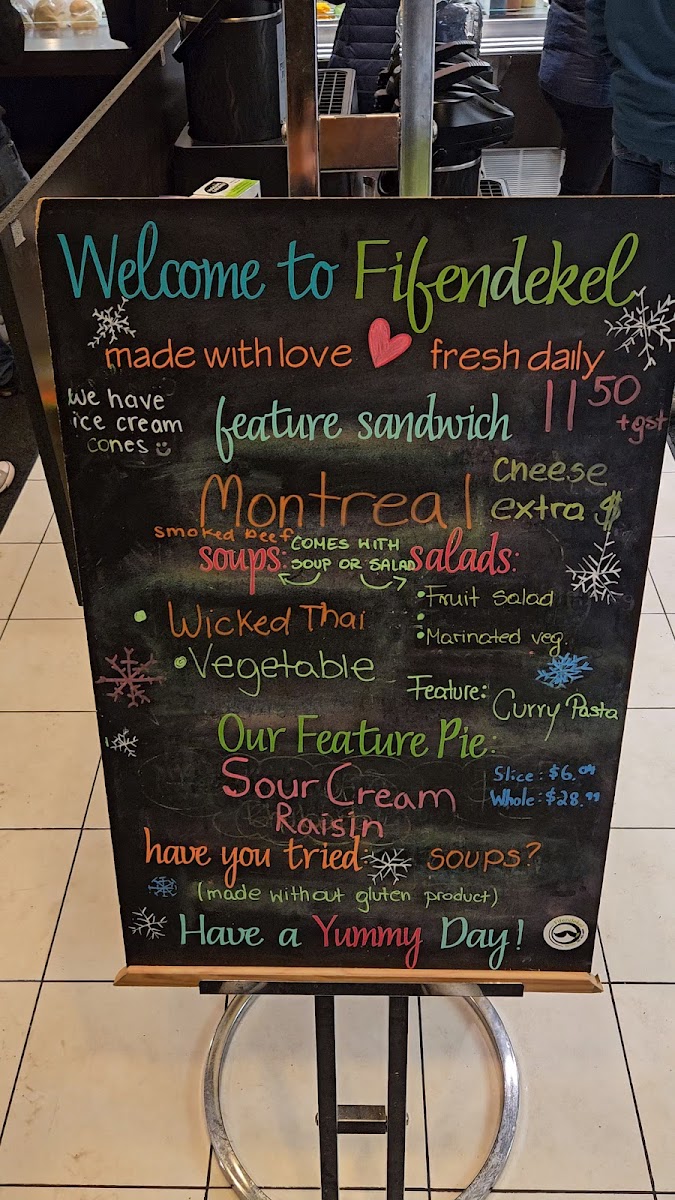 Welcome to Fifendekel
made with love fresh daily
We have
ice cream
cones
feature sandwich
11 50
+gst
Montreal
smoked beef
Cheese
extra $
soups:
COMES WITH
SOUP OR SALAD
salads:
• Wicked Thai
• Vegetable
• Fruit Salad
•
• Marinated veg.
Feature: Curry Pasta
Our Feature Pie:
Sour Cream
Raisin
Slice: $6.09
Whole: $28.99
have you tried: soups?
(made without gluten product)
Have a Yummy Day!